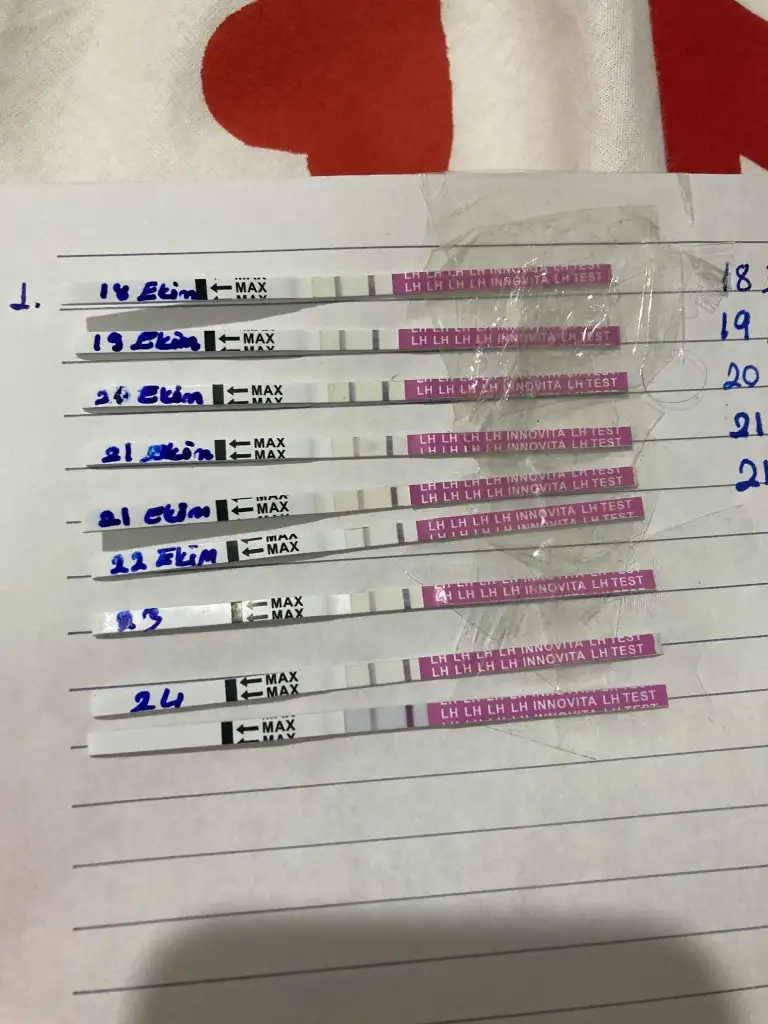 1. 18 Ekim ← MAX LH LH LH LH INNOVITA LH TEST 18
19 Ekim ← MAX LH LH LH LH INNOVITA LH TEST 19
20 Ekim ← MAX LH LH LH LH INNOVITA LH TEST 20
21 Ekim ← MAX LH LH LH LH INNOVITA LH TEST 21
21 Ekim ← MAX LH LH LH LH INNOVITA LH TEST 21
22 Ekim ← MAX LH LH LH LH INNOVITA LH TEST
23 ← MAX LH LH LH LH INNOVITA LH TEST
24 ← MAX LH LH LH LH INNOVITA LH TEST
← MAX LH LH LH LH INNOVITA LH TEST